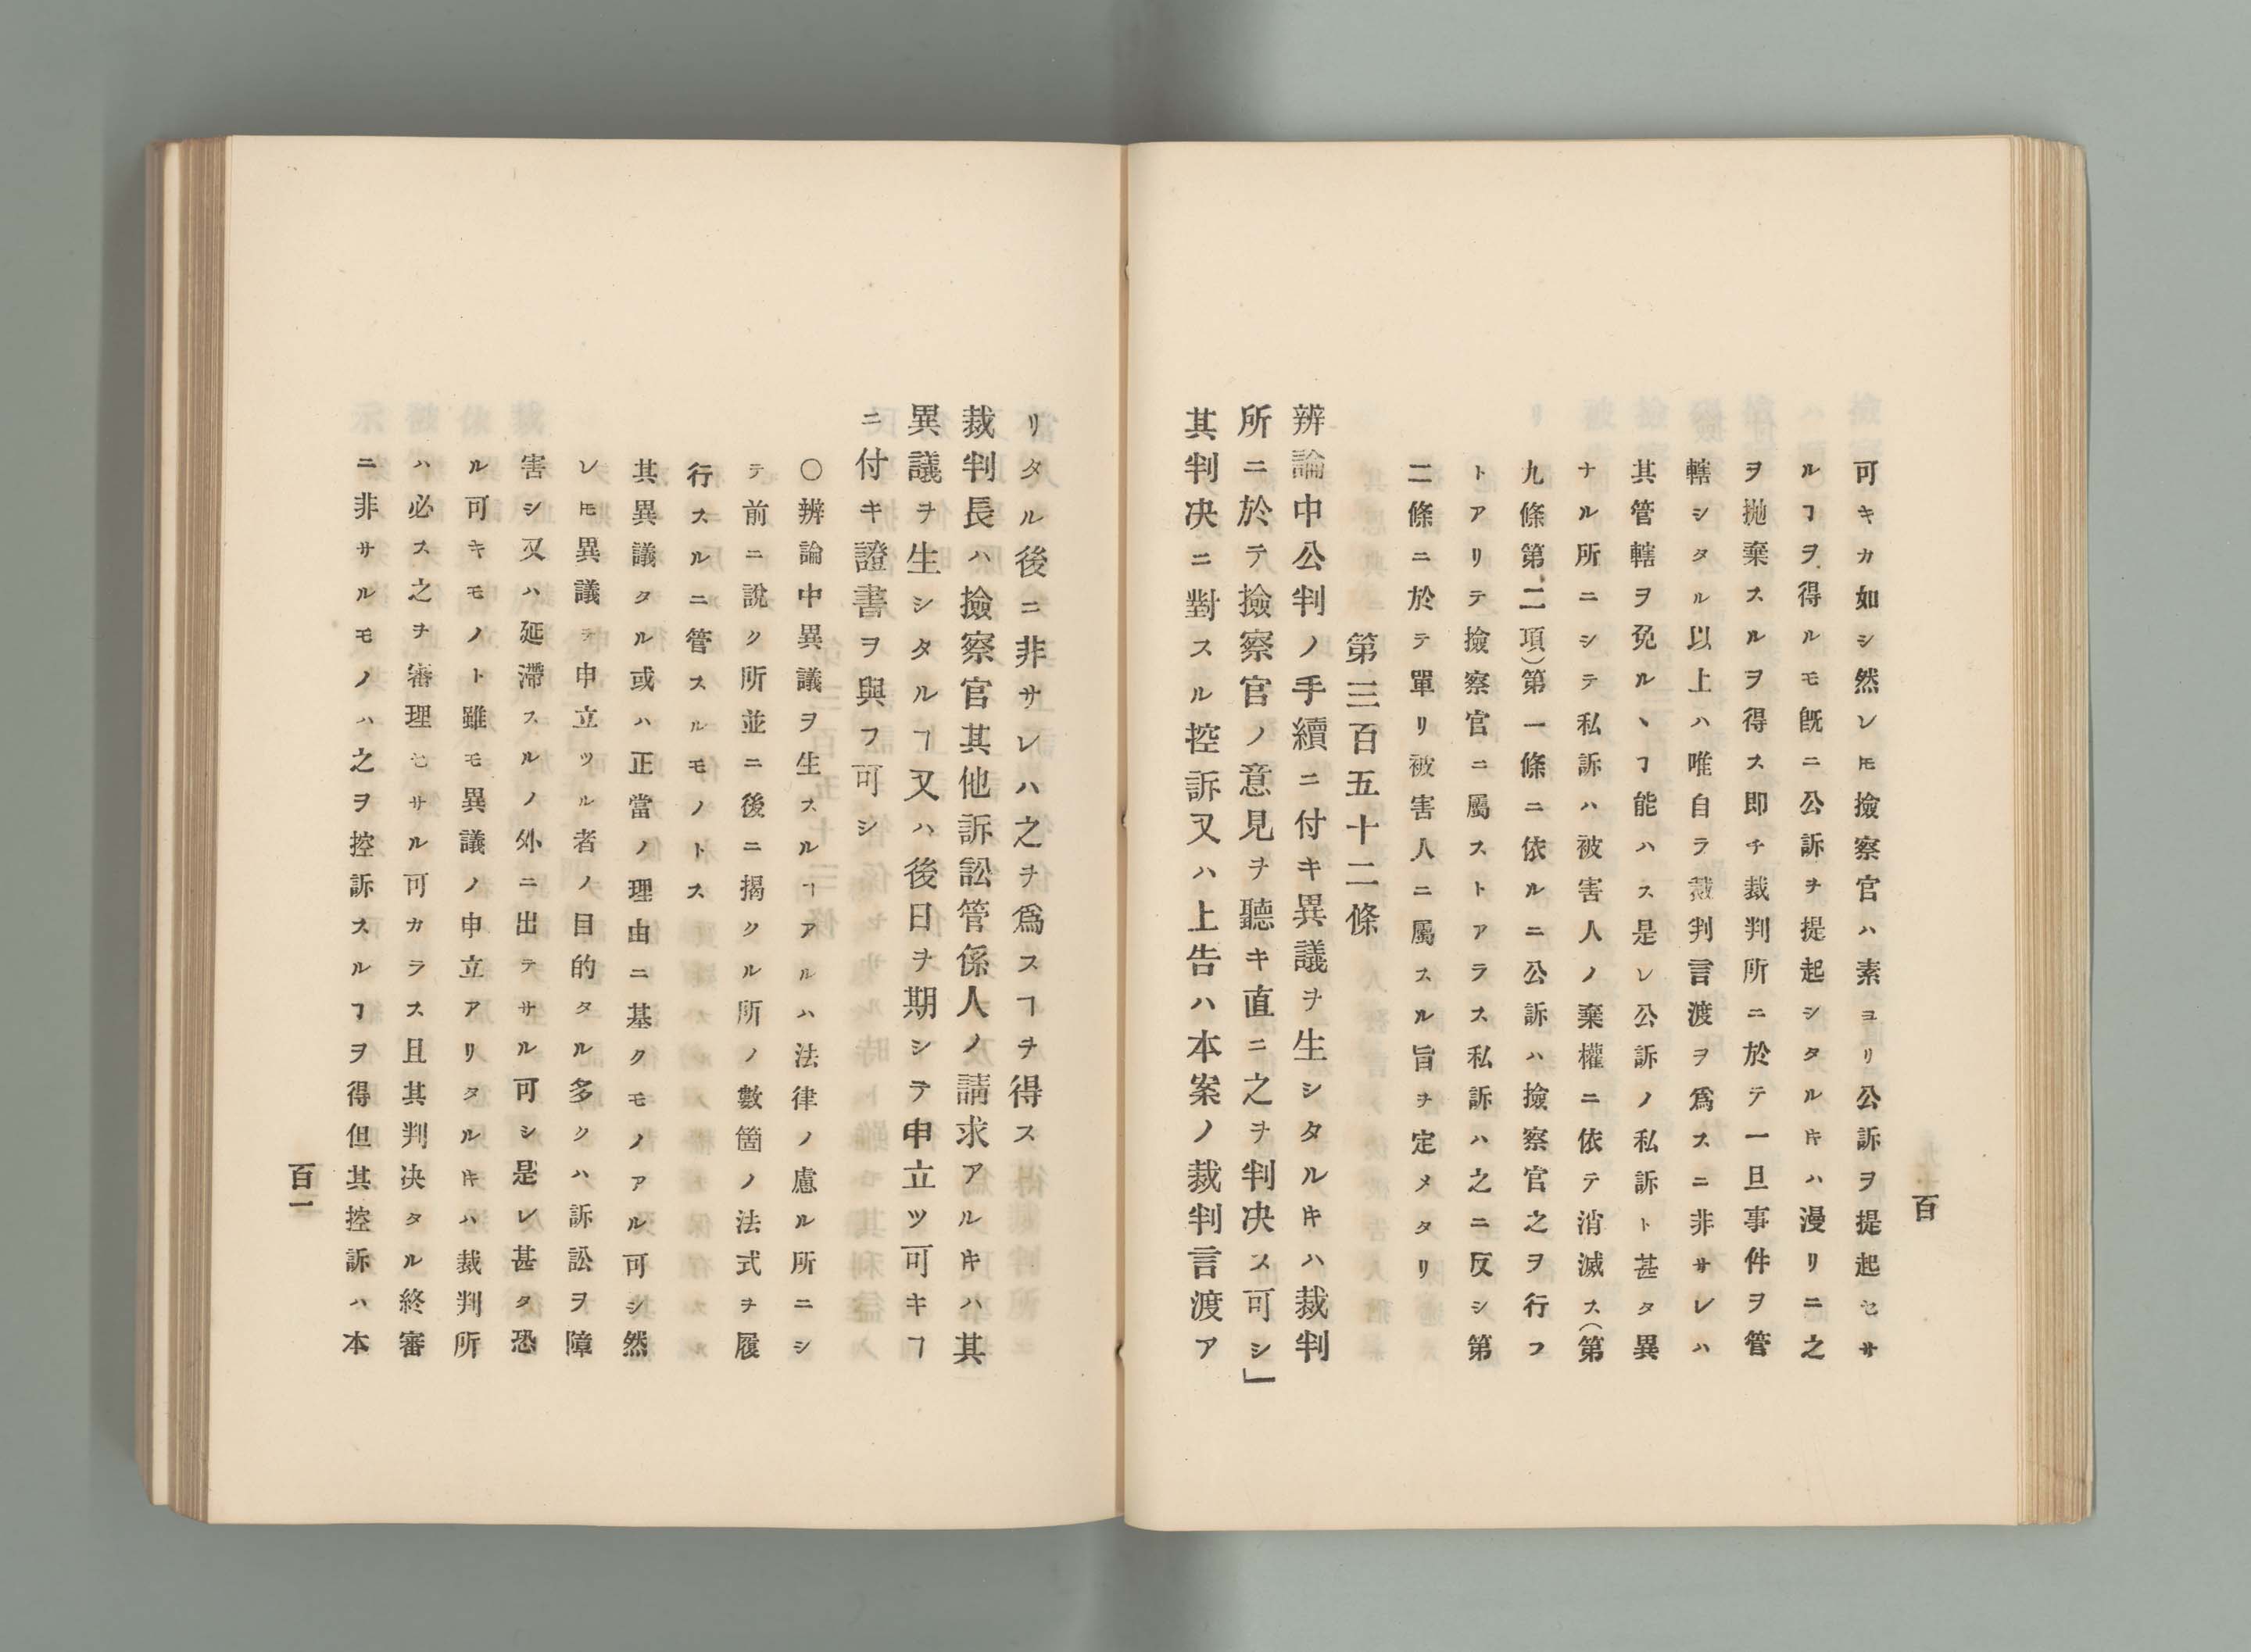 百
可キカ如シ然レ𪜈撿察官ハ素ヨリ公訴ヲ提起セサ
ルヿヲ得ルモ旣ニ公訴ヲ提起シタルキハ漫リニ之
ヲ抛棄スルヲ得ス即チ裁判所ニ於テ一旦事件ヲ管
轄シタル以上ハ唯自ラ裁判言渡ヲ爲スニ非サレハ
其管轄ヲ免ルヽヿ能ハス是レ公訴ノ私訴ト甚タ異
ナル所ニシテ私訴ハ被害人ノ棄權ニ依テ消滅ス(第
九條第二項)第一條ニ依ルニ公訴ハ撿察官之ヲ行フ
トアリテ撿察官ニ屬ストアラス私訴ハ之ニ反シ第
二條ニ於テ單リ被害人ニ屬スル旨ヲ定メタリ
第三百五十二條
辨論中公判ノ手續ニ付キ異議ヲ生シタルキハ裁判
所ニ於テ撿察官ノ意見ヲ聽キ直ニ之ヲ判决ス可シ」
其判决ニ對スル控訴又ハ上告ハ本案ノ裁判言渡ア
リタル後ニ非サレハ之ヲ爲スヿヲ得ス
裁判長ハ撿察官其他訴訟管係人ノ請求アルキハ其
異議ヲ生シタルヿ又ハ後日ヲ期シテ申立ツ可キヿ
ニ付キ證書ヲ與フ可シ
〇辨論中異議ヲ生スルヿアルハ法律ノ慮ル所ニシ
テ前ニ說ク所並ニ後ニ揭クル所ノ數箇ノ法式ヲ履
行スルニ管スルモノトス
其異議タル或ハ正當ノ理由ニ基クモノアル可シ然
レ𪜈異議ヲ申立ツル者ノ目的タル多クハ訴訟ヲ障
害シ又ハ延滯スルノ外ニ出テサル可シ是レ甚タ恐
ル可キモノト雖モ異議ノ申立アリタルキハ裁判所
ハ必ス之ヲ審理セサル可カラス且其判决タル終審
ニ非サルモノハ之ヲ控訴スルヿヲ得但其控訴ハ本
百一